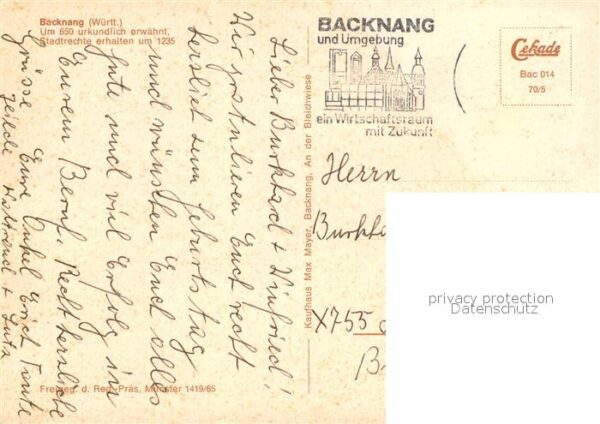 Backnang (Württ.)
Um 650 urkundlich erwähnt,
Stadtrechte erhalten um 1235
Lieber Burkhard + Winfried!
Wir gratulieren Euch recht
herzlich zum Geburtstag
und wünschen Euch alles
gute und viel Erfolg im
Eurem Beruf. Recht herzliche
Grüsse Eure Onkel Erich Tante
+ Luta
Freigeg. d. Reg.-Präs. Münster 1419/65
Kaufhaus Max Mayer, Backnang, An der Bleichwiese
BACKNANG
und Umgebung
ein Wirtschaftsraum
mit Zukunft
Cekade
Bac 014
70/5
Herrn
Burkha
X755
B
privacy protection
Datenschutz